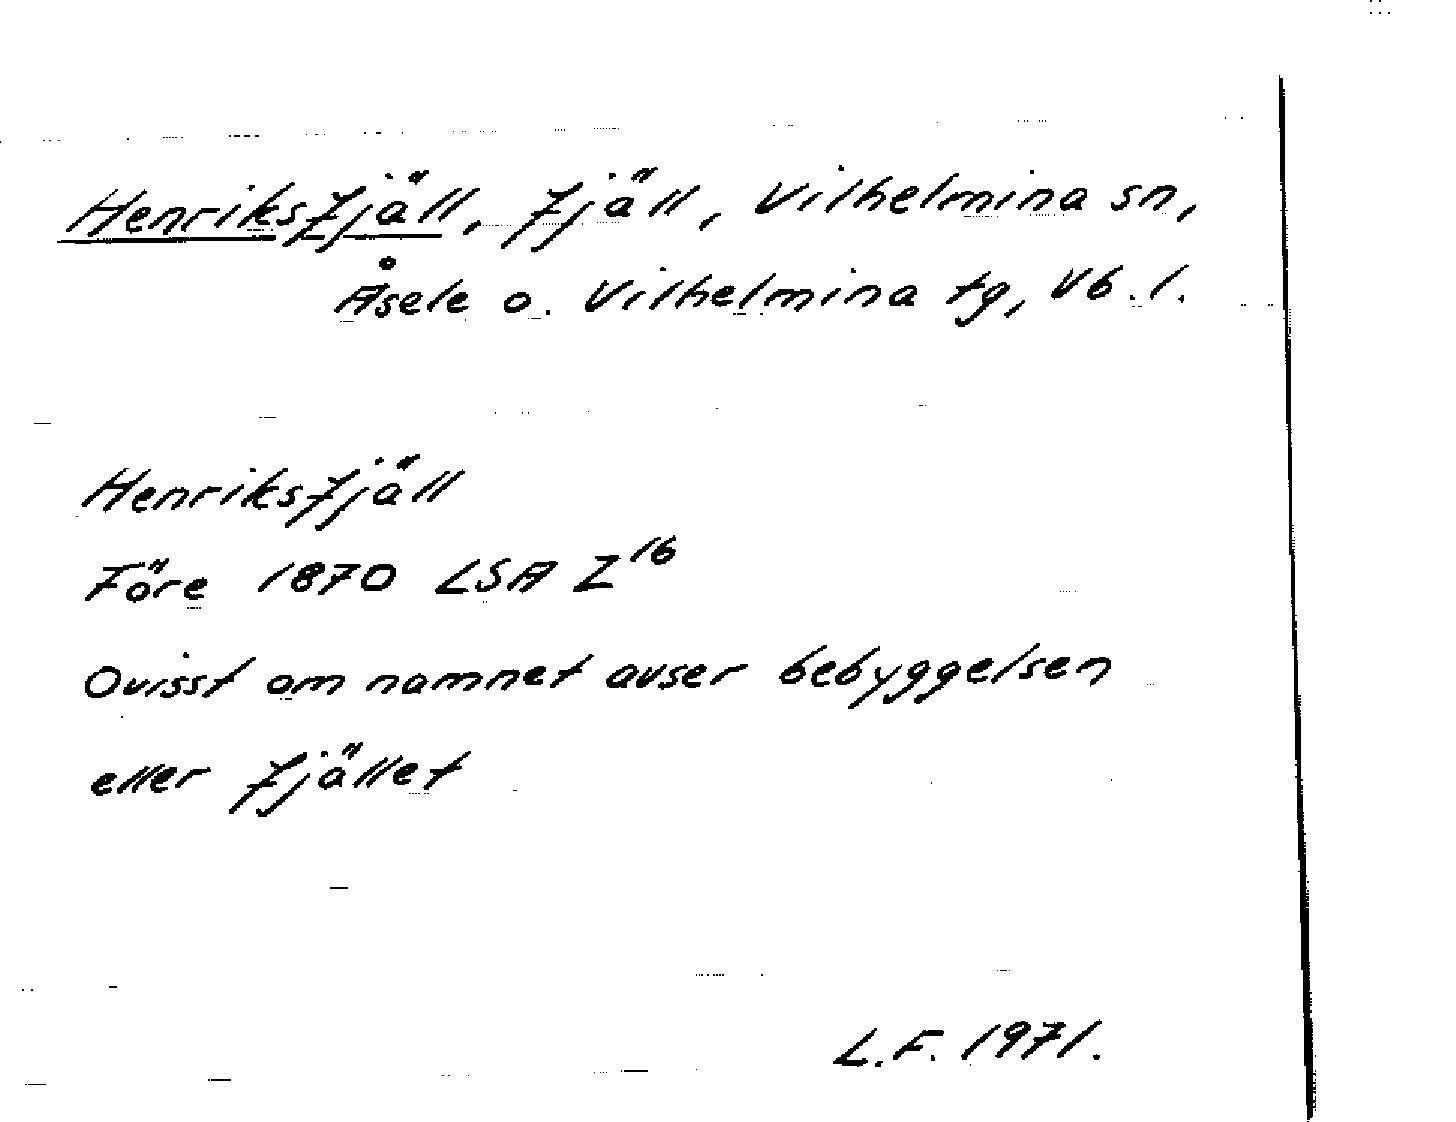 Henriksfjäll, fjäll, Vilhelmina sn,
Åsele o. Vilhelmina tg, Vb. l.
Henriksfjäll
Före 1870 LSA Z¹⁶
Ovisst om namnet avser bebyggelsen
eller fjället
L.F. 1971.